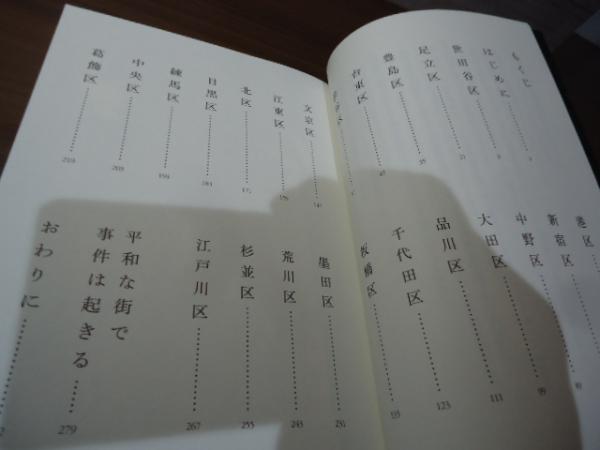 もくじ
はじめに……… 3
世田谷区……… 9
足立区……… 21
豊島区……… 35
台東区……… 47
港区………
新宿区……… 89
中野区……… 99
大田区……… 111
品川区……… 123
千代田区……… 133
板橋区………
文京区……… 141
江東区……… 159
北区……… 171
目黒区……… 181
練馬区……… 193
中央区……… 203
葛飾区……… 219
墨田区……… 231
荒川区……… 243
杉並区……… 255
江戸川区……… 267
平和な街で
事件は起きる……… 279
おわりに………